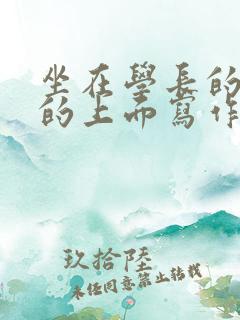 坐在學長的
的上面寫作
玖拾陸
未任同意第止转载